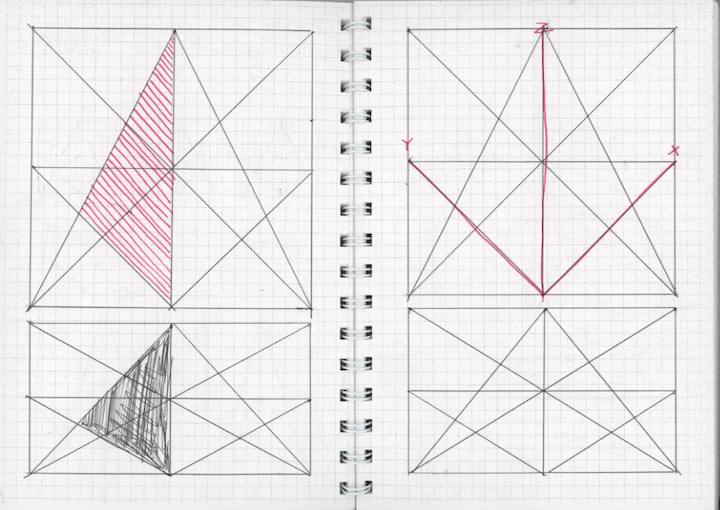 Z
Y
X